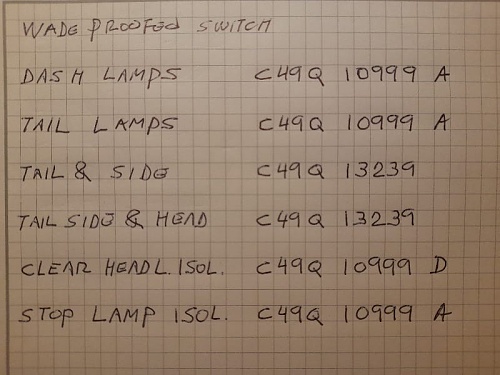 WADE PROOFED SWITCH
DASH LAMPS C49Q 10999 A
TAIL LAMPS C49Q 10999 A
TAIL & SIDE C49Q 13239
TAIL SIDE & HEAD C49Q 13239
CLEAR HEADL. ISOL. C49Q 10999 D
STOP LAMP ISOL. C49Q 10999 A